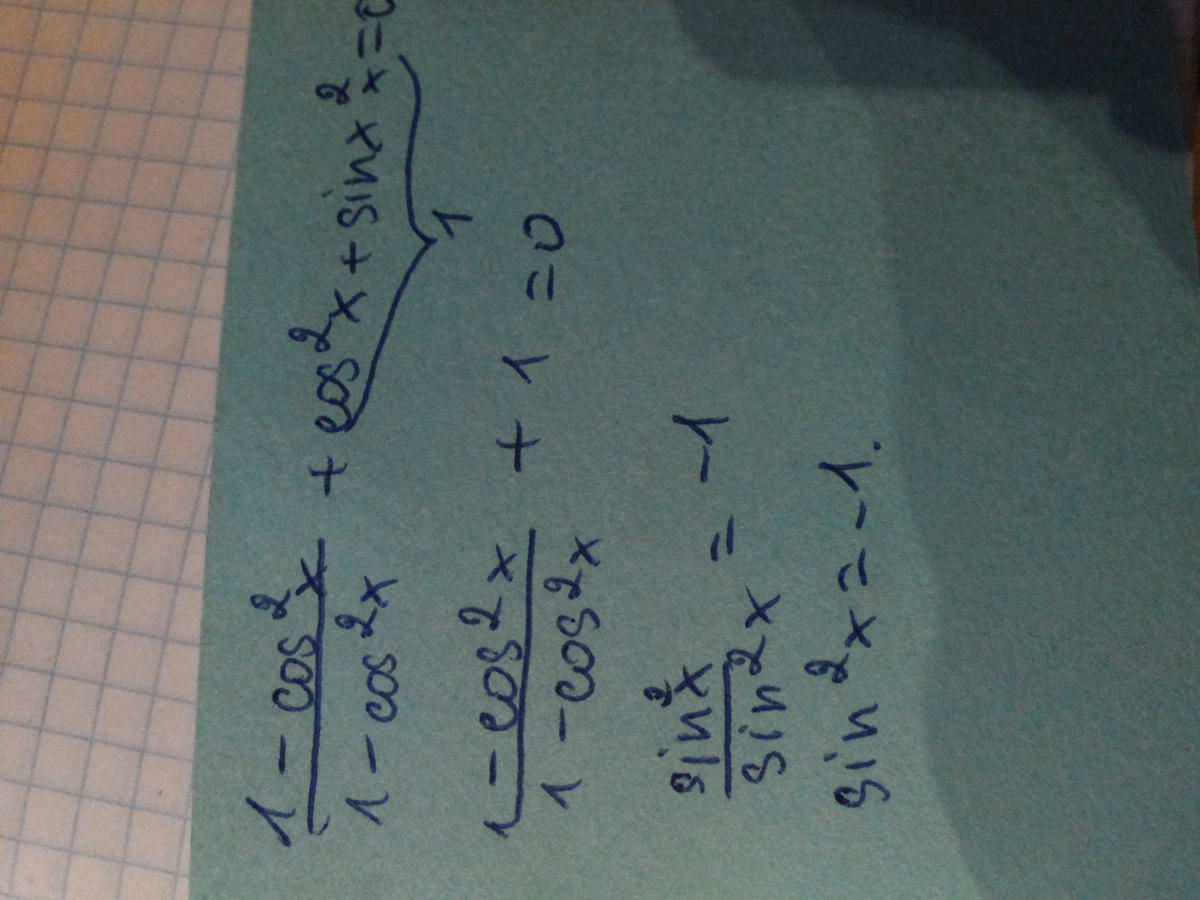 1 - cos²x / 1 - cos²x + cos²x + sinx²x = 0
1
1 - cos²x / 1 - cos²x + 1 = 0
sin²x / sin²x = -1
sin²x = -1.